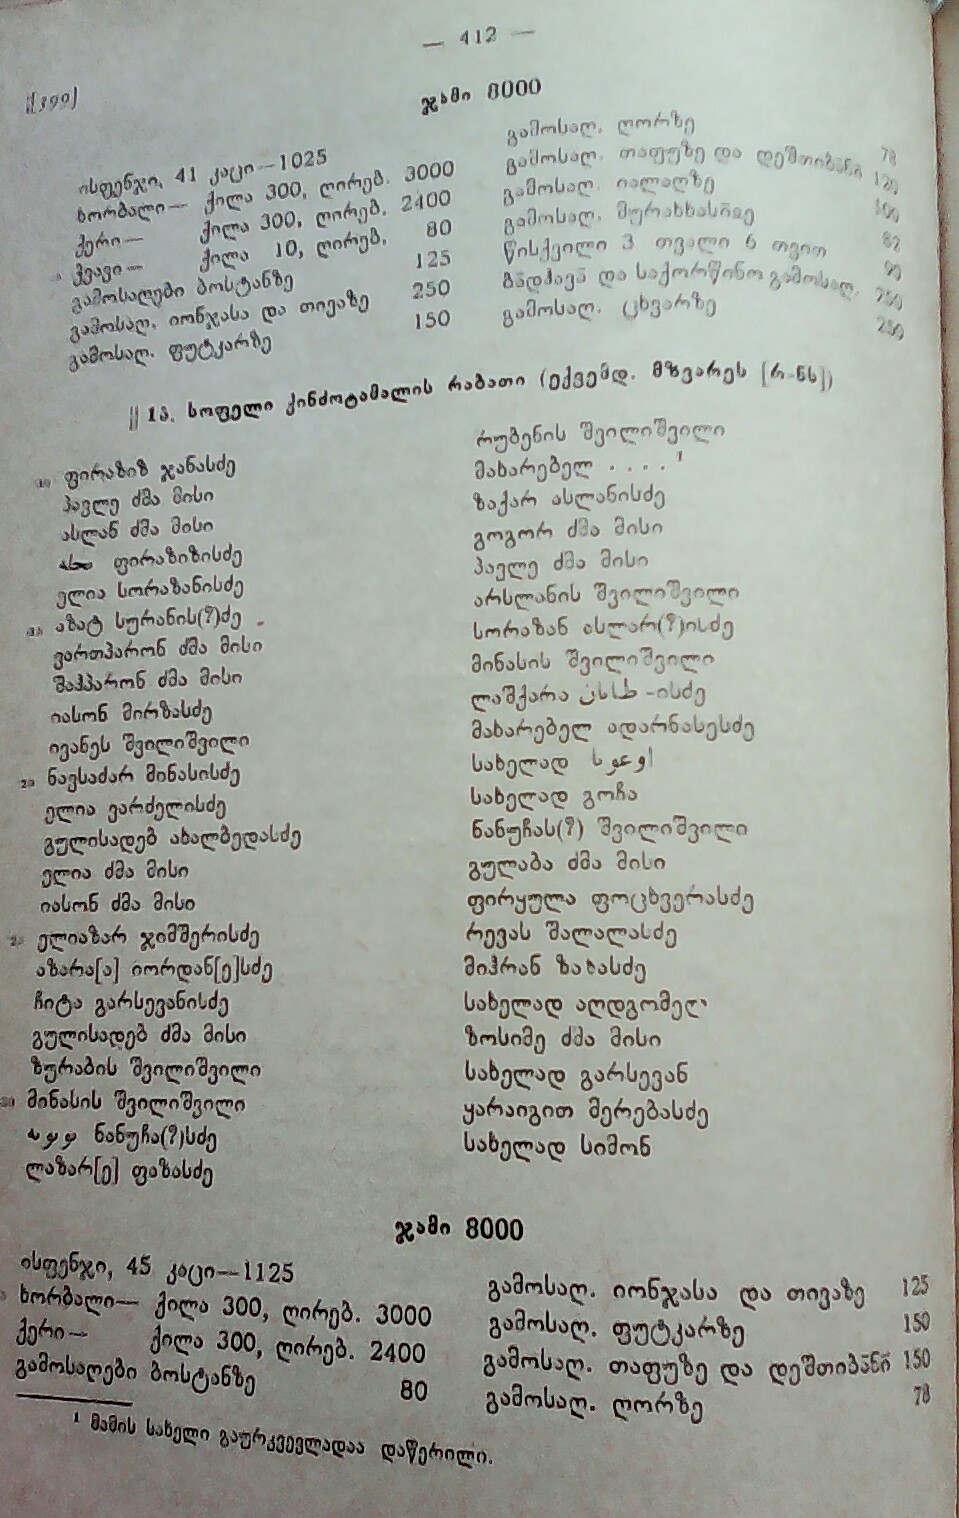 — 412 —
[399]
ჯამი 8000
ისფენჯი, 41 კაცი—1025
ხორბალი— ქილა 300, ღირებ. 3000
ქერი— ქილა 300, ღირებ. 2400
ჭვავი— ქილა 10, ღირებ. 80
გამოსაღები ბოსტანზე 125
გამოსაღ. იონჯასა და თივაზე 250
გამოსაღ. ფუტკარზე 150
გამოსაღ. ღორზე 78
გამოსაღ. თაფუზე და დეშთიბანი 120
გამოსაღ. იალაღზე 100
გამოსაღ. მურახხასიიე 82
წისქვილი 3 თვალი 6 თვით 90
ბადჰავა და საქორწინო გამოსაღ. 250
გამოსაღ. ცხვარზე 250
|| 13. სოფელი ქინძოტამალის რაბათი (ექვემდ. მზვარეს [რ-ნს])
ფირაზიზ ჯანასძე
პავლე ძმა მისი
ასლან ძმა მისი
ფირაზიზისძე
ელია სორაზანისძე
აზატ სურანის(?)ძე
ვართჰარონ ძმა მისი
შაჰპარონ ძმა მისი
იასონ მირზასძე
ივანეს შვილიშვილი
20 ნავსაძარ მინასისძე
ელია ვარძელისძე
გულისადებ ახალბედასძე
ელია ძმა მისი
იასონ ძმა მისი
25 ელიაზარ ჯიმშერისძე
აზარა[ა] იორდან[ე]სძე
ჩიტა გარსევანისძე
გულისადებ ძმა მისი
ზურაბის შვილიშვილი
30 მინასის შვილიშვილი
ნანუჩა(?)სძე
ლაზარ[ე] ფაზასძე
რუბენის შვილიშვილი
მახარებელ . . . . ¹
ზაქარ ასლანისძე
გოგორ ძმა მისი
პავლე ძმა მისი
არსლანის შვილიშვილი
სორაზან ასლარ(?)ისძე
მინასის შვილიშვილი
ლაშქარა -ისძე
მახარებელ ადარნასესძე
სახელად
სახელად გოჩა
ნანუჩას(?) შვილიშვილი
გულაბა ძმა მისი
ფირყულა ფოცხვერასძე
რევას შალალასძე
მიჰრან ზახასძე
სახელად აღდგომელ
ზოსიმე ძმა მისი
სახელად გარსევან
ყარაიგით მერებასძე
სახელად სიმონ
ჯამი 8000
ისფენჯი, 45 კაცი—1125
ხორბალი— ქილა 300, ღირებ. 3000
ქერი— ქილა 300, ღირებ. 2400
გამოსაღები ბოსტანზე 80
გამოსაღ. იონჯასა და თივაზე 125
გამოსაღ. ფუტკარზე 150
გამოსაღ. თაფუზე და დეშთიბანი 150
გამოსაღ. ღორზე 78
¹ მამის სახელი გაურკვევლადაა დაწერილი.